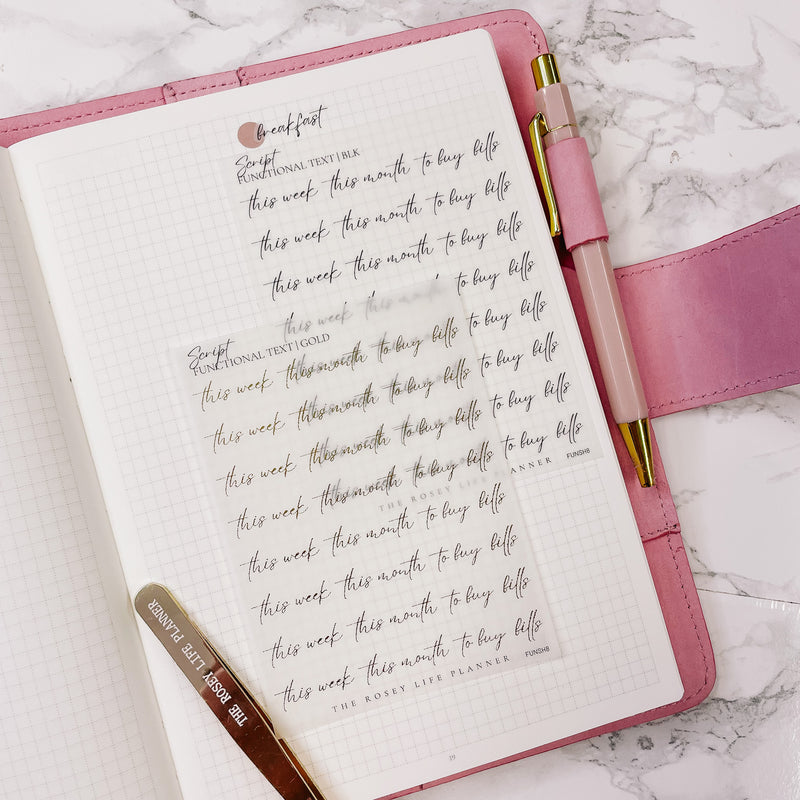 breakfast
Script
FUNCTIONAL TEXT | BLK
this week this month to buy bills
this week this month to buy bills
this week this month to buy bills
this week this made to buy bills
to buy bills
to buy bills
to buy bills
to buy bills
THE ROSEY LIFE PLANNER FUNSH8
Script
FUNCTIONAL TEXT | GOLD
this week this month to buy bills
this week this month to buy bills
this week this month to buy bills
this week this month to buy bills
this week this month to buy bills
this week this month to buy bills
this week this month to buy bills
this week this month to buy bills
THE ROSEY LIFE PLANNER FUNSH8
THE ROSEY LIFE PLANNER
29